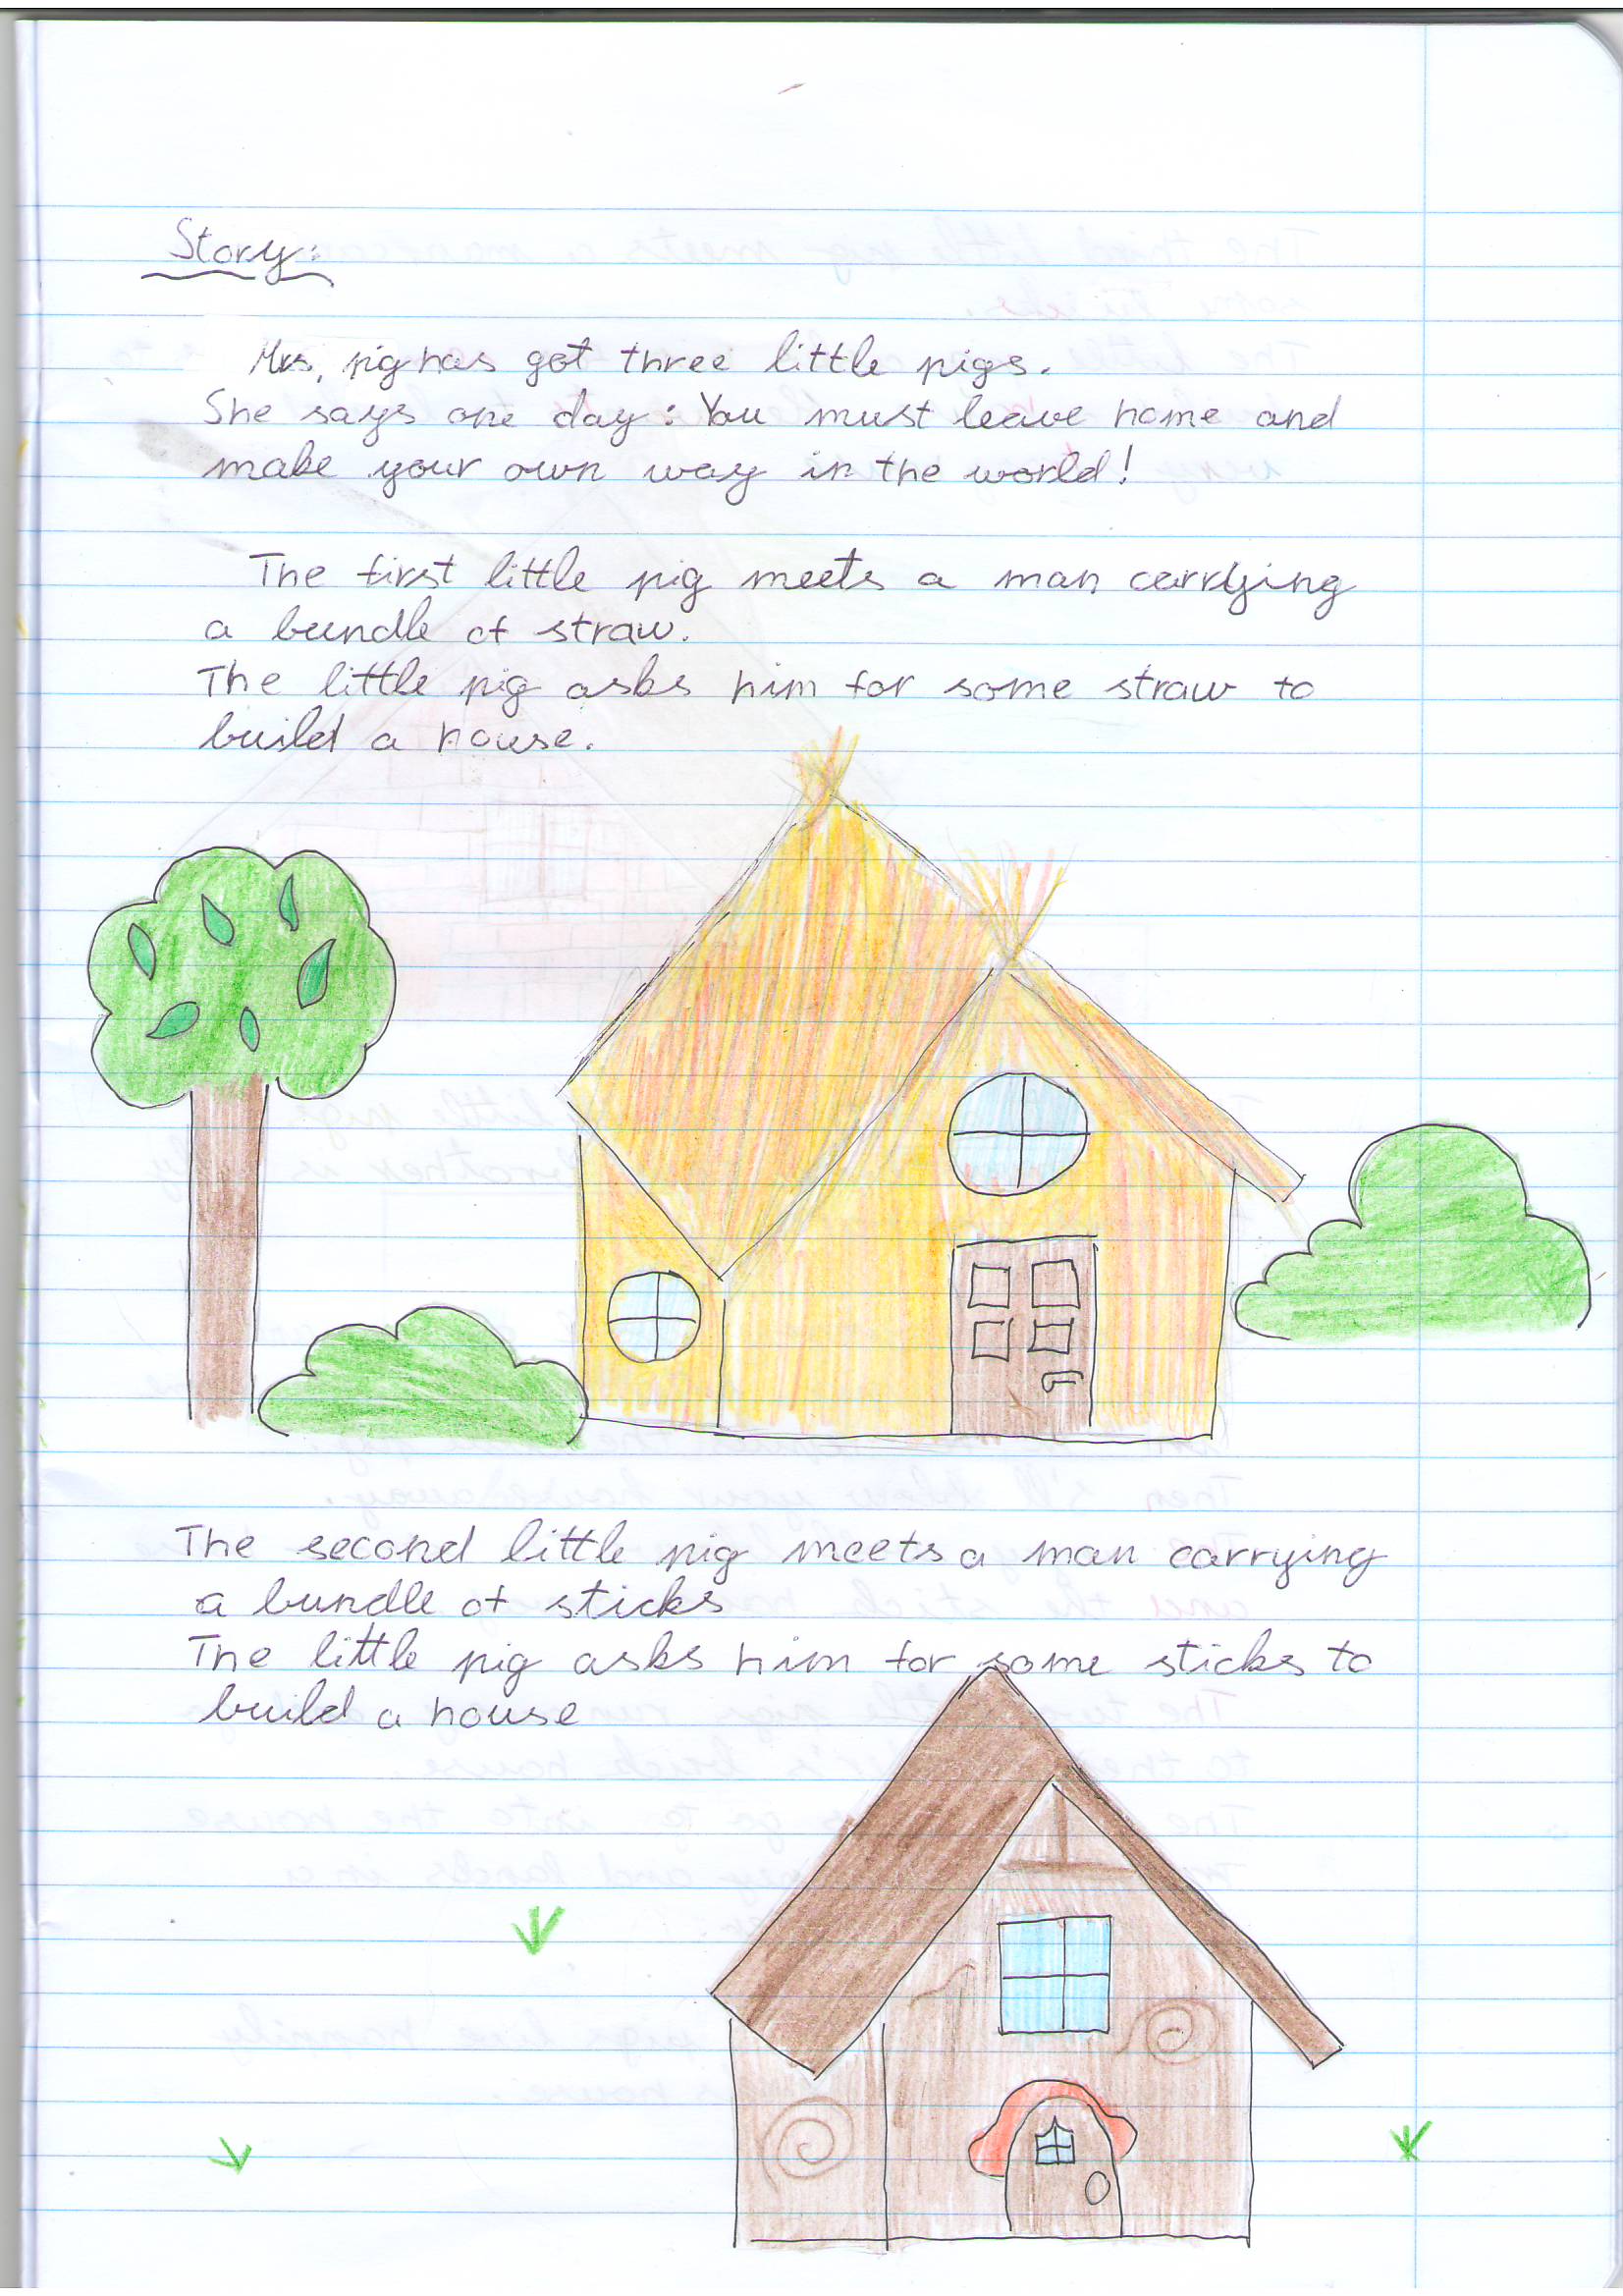 Story:
Mrs. pig has got three little pigs.
She says one day: You must leave home and
make your own way in the world!
The first little pig meets a man carrying
a bundle of straw.
The little pig asks him for some straw to
build a house.
The second little pig meets a man carrying
a bundle of sticks
The little pig asks him for some sticks to
build a house